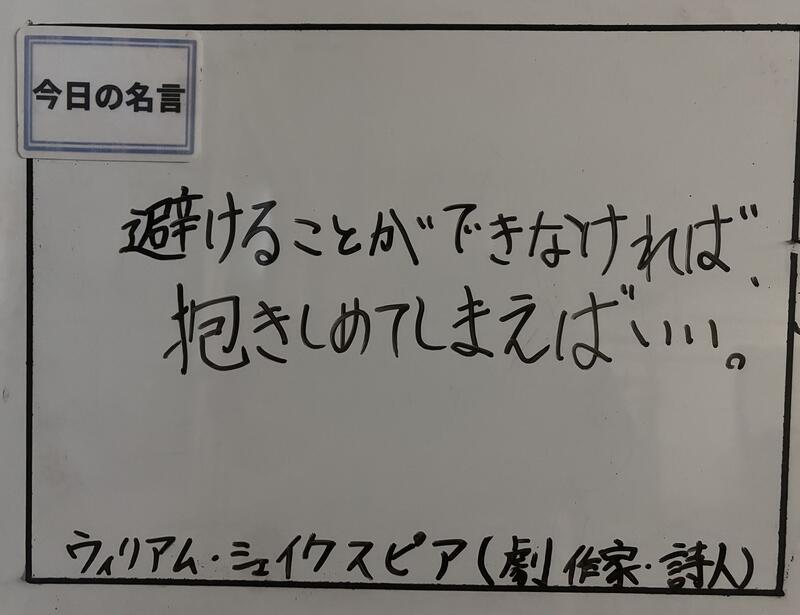 今日の名言
避けることができなければ、
抱きしめてしまえばいい。
ウィリアム・シェイクスピア(劇作家・詩人)